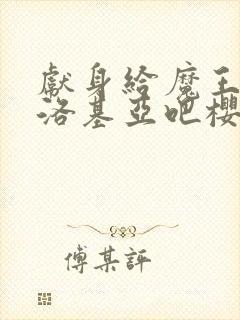 獻身給魔王
洛基亞吧櫻
傅某評